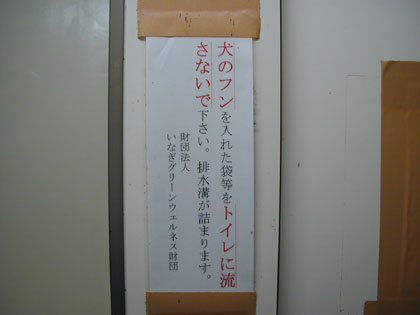 犬のフンを入れた袋等をトイレに流
さないで下さい。排水溝が詰まります。
財団法人
いなぎグリーンウェルネス財団